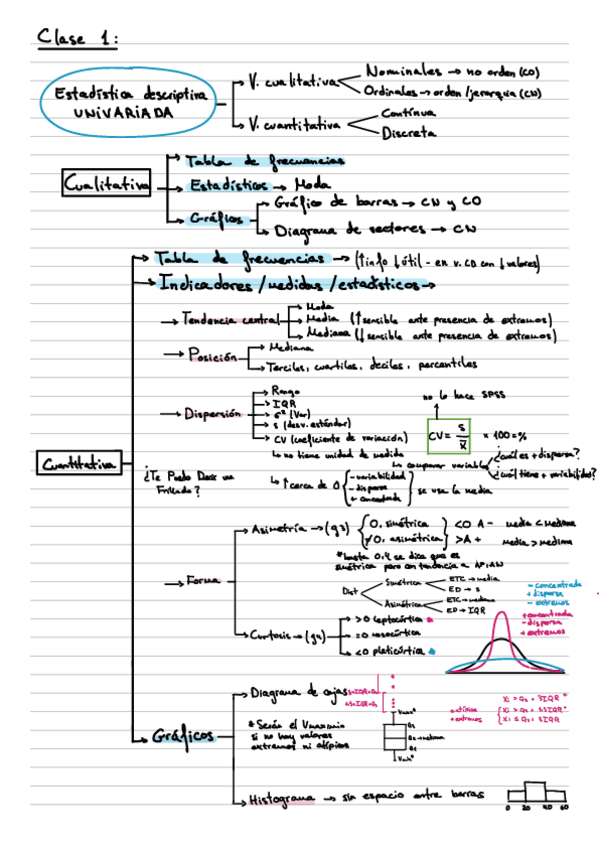 Clase 1:
Estadística descriptiva
UNIVARIADA
V. cualitativa
Nominales → no orden (CO)
Ordinales → orden/jerarqua (CN)
V. cuantitativa
Continua
Discreta
Cualitativa
Tabla de frecuencias
Estadísticos → Moda
Gráficos
Gráfico de barras → CN y CO
Diagrama de sectores → CN
Cuantitativa
Tabla de frecuencias → (↑info ↓útil - en v. CD con ↓valores)
Indicadores/medidas/estadísticos →
Tendencia central
Moda
Media (↑sensible ante presencia de extremos)
Mediana (↓sensible ante presencia de extremos)
Posición
Mediana
Terciles, cuartiles, deciles, percentiles
Dispersión
Rango
IQR
σ² (Var)
s (desv. estándar)
CV (coeficiente de variación)
↳ no tiene unidad de medida
↳ comparar variables
¿cuál es + dispersa?
¿cuál tiene + variabilidad?
no lo hace SPSS
CV = s / x̄ × 100 = %
¿Te Puedo Decir un
Frillado?
↳ ↑cerca de 0
- variabilidad
- dispersa
+ concentrada
se usa la media
Forma
Asimetría → (g3)
0, simétrica
≠0, asimétrica
<0 A - media < mediana
>A + media > mediana
*hasta 0,4 se dice que es
simétrica pero con tendencia a AP/AN
Dist
Simétrica
ETC → media
ED → s
Asimétrica
ETC → mediana
ED → IQR
Curtosis → (g4)
>0 leptocúrtica
=0 mesocúrtica
<0 platicúrtica
- concentrada
+ dispersa
- extremos
+ concentrada
- dispersa
+ extremos
Gráficos
Diagrama de cajas
* Serán el Vmaxmin
si no hay valores
extremos ni atípicos
Vmax*
Q3
Q2 → mediana
Q1
Vmin*
atípicos
+ extremos
Histograma → sin espacio entre barras
0 20 40 60